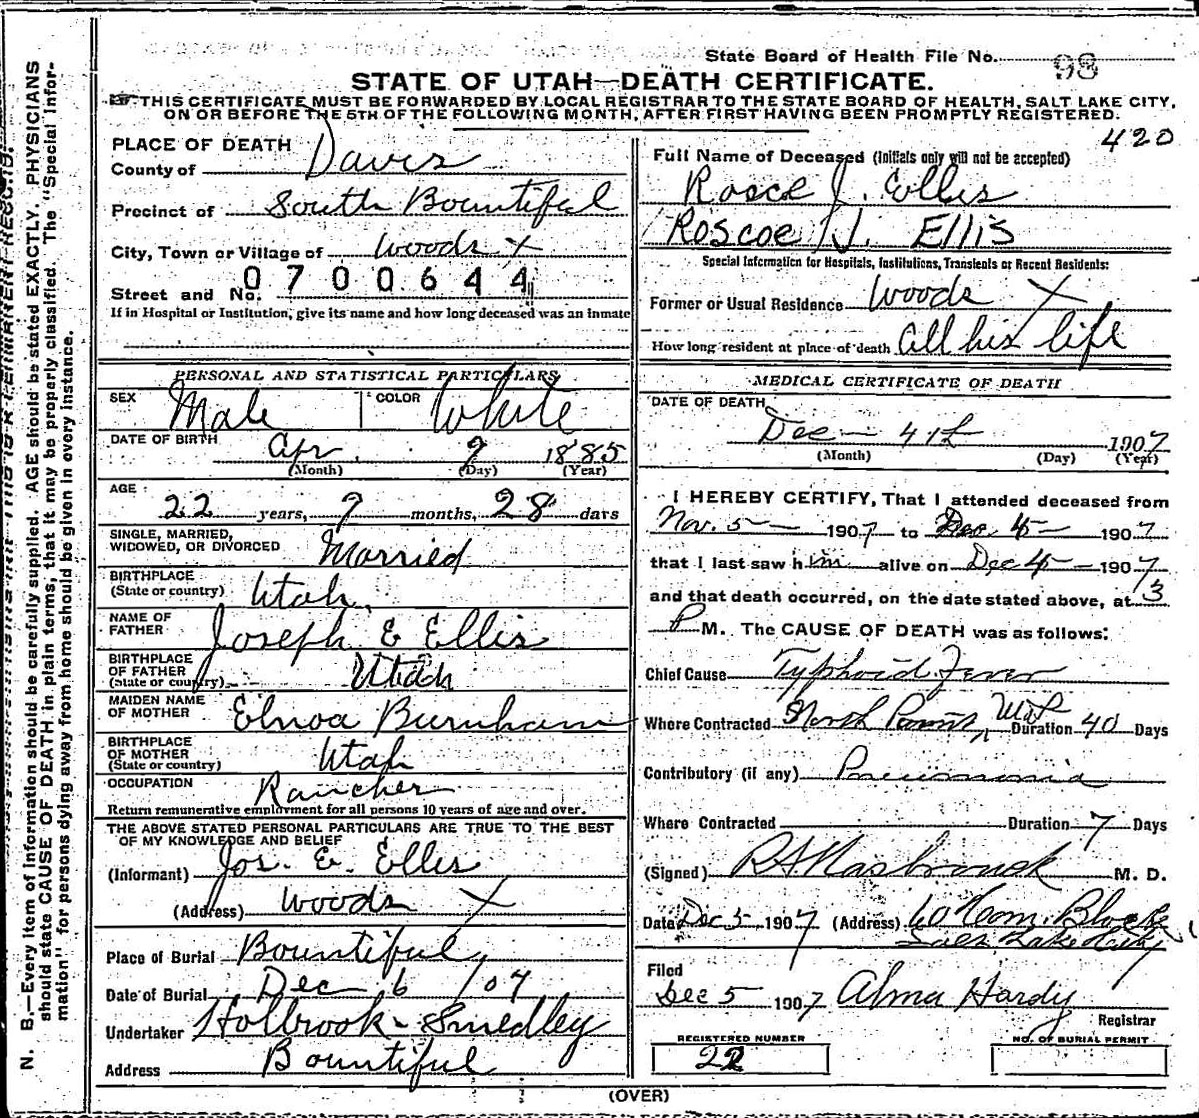 State Board of Health File No. 98
STATE OF UTAH—DEATH CERTIFICATE.
THIS CERTIFICATE MUST BE FORWARDED BY LOCAL REGISTRAR TO THE STATE BOARD OF HEALTH, SALT LAKE CITY,
ON OR BEFORE THE 5TH OF THE FOLLOWING MONTH, AFTER FIRST HAVING BEEN PROMPTLY REGISTERED.
420
PLACE OF DEATH
County of Davis
Precinct of South Bountiful
City, Town or Village of Woods X
Street and No. 0700644
If in Hospital or Institution, give its name and how long deceased was an inmate
PERSONAL AND STATISTICAL PARTICULARS
SEX Male COLOR White
DATE OF BIRTH Apr 7 1885
(Month) (Day) (Year)
AGE 22 years, 7 months, 28 days
SINGLE, MARRIED,
WIDOWED, OR DIVORCED Married
BIRTHPLACE
(State or country) Utah
NAME OF
FATHER Joseph E Ellis
BIRTHPLACE
OF FATHER
(State or country) Utah
MAIDEN NAME
OF MOTHER Elnoa Burnham
BIRTHPLACE
OF MOTHER
(State or country) Utah
OCCUPATION Rancher
Return remunerative employment for all persons 10 years of age and over.
THE ABOVE STATED PERSONAL PARTICULARS ARE TRUE TO THE BEST
OF MY KNOWLEDGE AND BELIEF
(Informant) Jos. E. Ellis
(Address) Woods X
Place of Burial Bountiful
Date of Burial Dec 6 /07
Undertaker Holbrook - Smedley
Address Bountiful
Full Name of Deceased (Initials only will not be accepted)
Rosco J. Ellis
Roscoe J. Ellis
Special Information for Hospitals, Institutions, Transients or Recent Residents:
Former or Usual Residence Woods X
How long resident at place of death All his life
MEDICAL CERTIFICATE OF DEATH
DATE OF DEATH
Dec 4th 1907
(Month) (Day) (Year)
I HEREBY CERTIFY, That I attended deceased from
Nov. 5 1907 to Dec 4 1907
that I last saw him alive on Dec 4 1907
and that death occurred, on the date stated above, at 3
P M. The CAUSE OF DEATH was as follows:
Chief Cause Typhoid Fever
Where Contracted North Duration 40 Days
Contributory (if any) Pneumonia
Where Contracted Duration 7 Days
(Signed) R A Hasbrouck M. D.
Date Dec 5 1907 (Address) Com. Block
Salt Lake City
Filed
Dec 5 1907 Alma Hardy
Registrar
REGISTERED NUMBER
22
NO. OF BURIAL PERMIT
(OVER)
N. B.—Every item of information should be carefully supplied. AGE should be stated EXACTLY. PHYSICIANS
should state CAUSE OF DEATH in plain terms, that it may be properly classified. The "Special Infor-
mation" for persons dying away from home should be given in every instance.